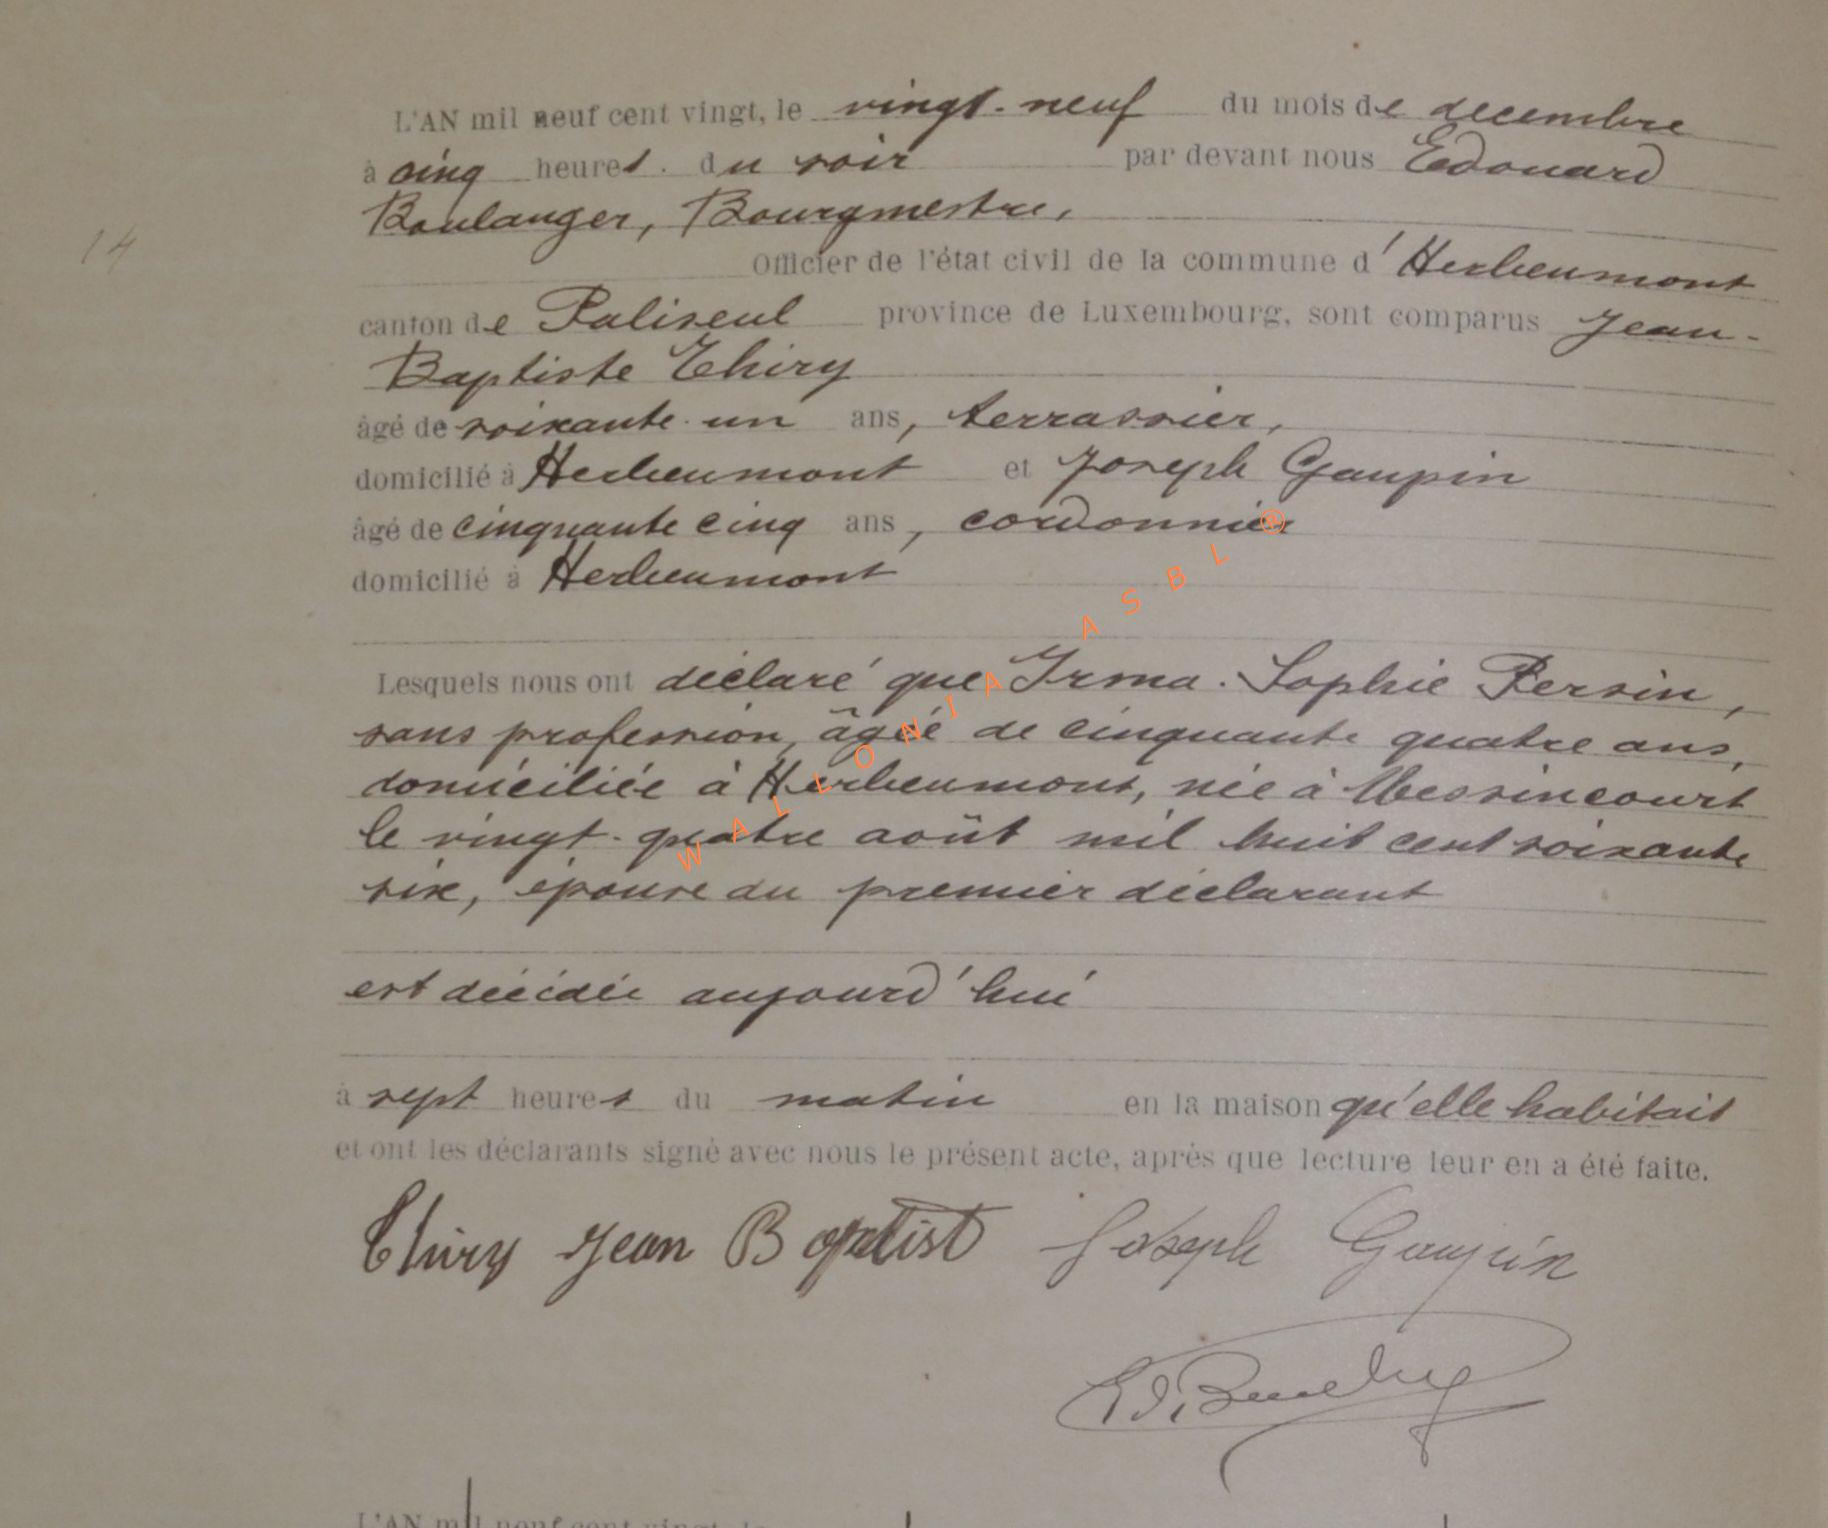 L'AN mil neuf cent vingt, le vingt-neuf du mois de decembre
à cinq heures. du soir par devant nous Edouard
Boulanger, Bourgmestre,
14
Officier de l'état civil de la commune d'Herbeumont
canton de Paliseul province de Luxembourg, sont comparus Jean-
Baptiste Thiry
âgé de soixante-un ans, terrassier,
domicilié à Herbeumont et Joseph Gaupin
âgé de cinquante cinq ans, cordonnier
domicilié à Herbeumont
Lesquels nous ont déclaré que Irma-Sophie Persin,
sans profession, âgée de cinquante quatre ans,
domiciliée à Herbeumont, née à Messincourt
le vingt-quatre août mil huit cent soixante
six, épouse du premier déclarant
est décédée aujourd'hui
à sept heures du matin en la maison qu'elle habitait
et ont les déclarants signé avec nous le présent acte, après que lecture leur en a été faite.
Thiry Jean Baptist Joseph Gaupin
L'AN mil neuf cent vingt, le
WALLONIA ASBL ®